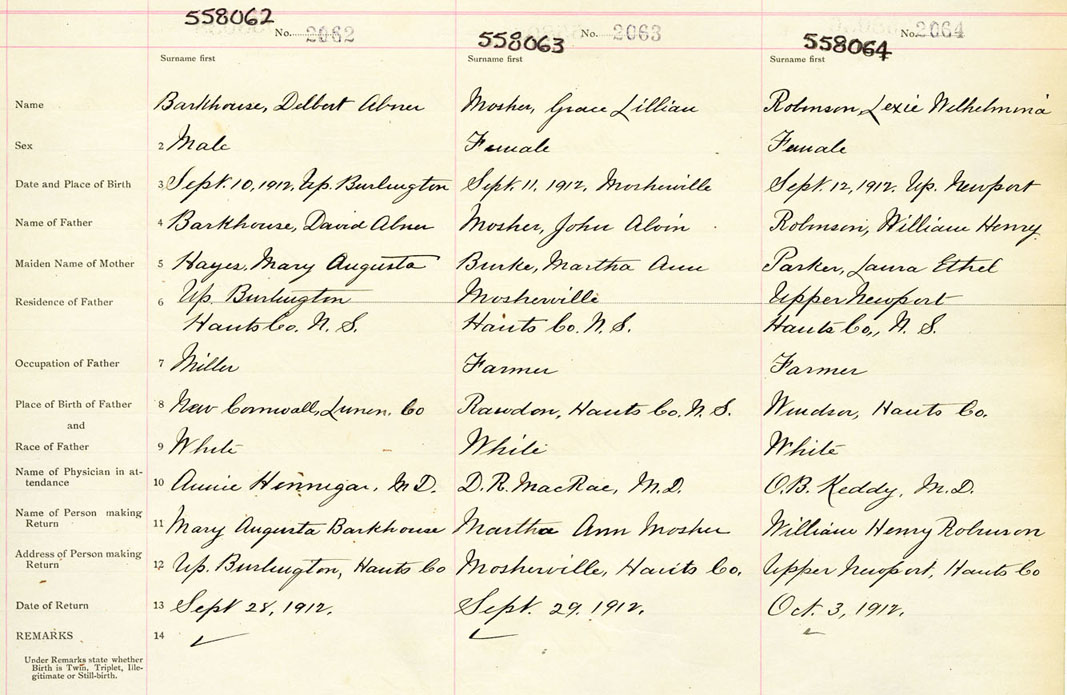 558062
No. 2062
558063
No. 2063
558064
No. 2064
Surname first
Surname first
Surname first
Name
Barkhouse, Delbert Abner
Mosher, Grace Lillian
Robinson, Lexie Wilhelmina
Sex
2 Male
Female
Female
Date and Place of Birth
3 Sept. 10, 1912, Up. Burlington
Sept. 11, 1912, Mosherville
Sept. 12, 1912. Up. Newport
Name of Father
4 Barkhouse, David Abner
Mosher, John Alvin
Robinson, William Henry
Maiden Name of Mother
5 Hayes, Mary Augusta
Burke, Martha Ann
Parker, Laura Ethel
Residence of Father
6 Up. Burlington
Mosherville
Upper Newport
Hants Co. N. S.
Hants Co. N. S.
Hants Co., N. S.
Occupation of Father
7 Miller
Farmer
Farmer
Place of Birth of Father
8 New Cornwall, Lunen. Co
Rawdon, Hants Co. N. S.
Windsor, Hants Co.
and
Race of Father
9 White
White
White
Name of Physician in at-
tendance
10 Annie Hennigar, M.D.
D.R. MacRae, M.D.
O.B. Keddy, M.D.
Name of Person making
Return
11 Mary Augusta Barkhouse
Martha Ann Mosher
William Henry Robinson
Address of Person making
Return
12 Up. Burlington, Hants Co
Mosherville, Hants Co.
Upper Newport, Hants Co
Date of Return
13 Sept 28, 1912.
Sept. 29. 1912.
Oct. 3, 1912.
REMARKS
14
Under Remarks state whether
Birth is Twin, Triplet, Ille-
gitimate or Still-birth.